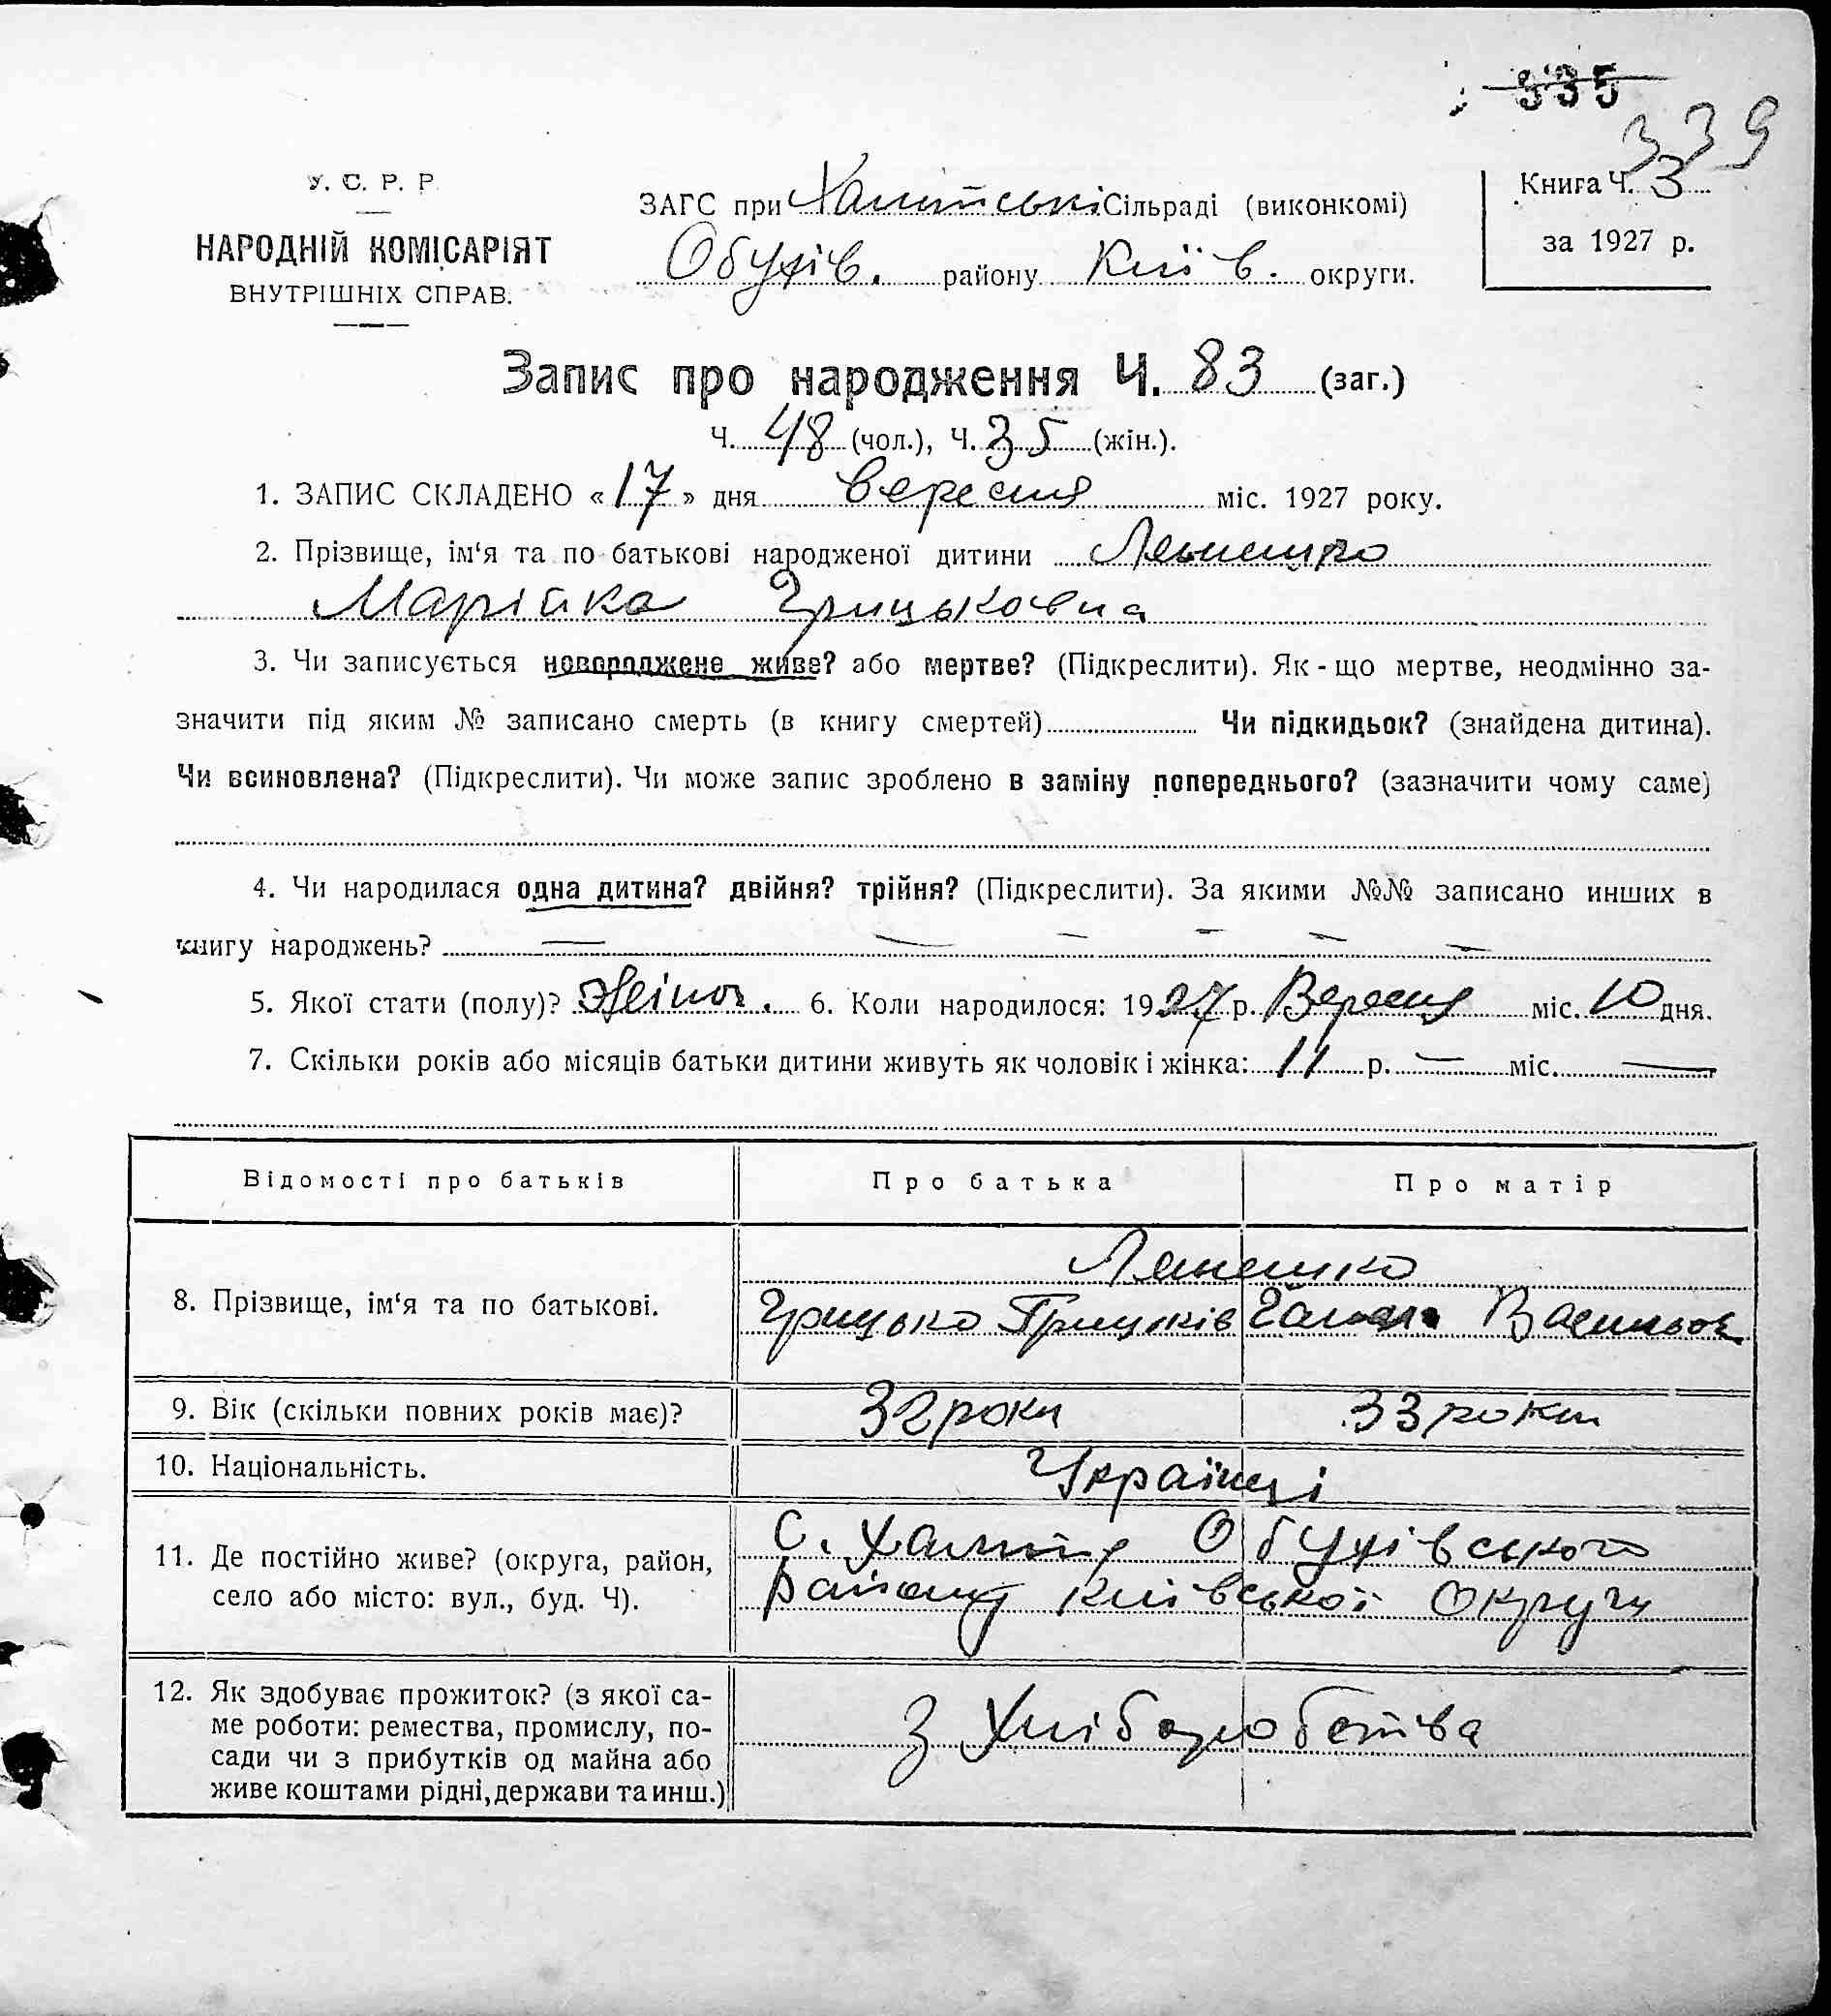 335
339
У. С. Р. Р.
НАРОДНІЙ КОМІСАРІЯТ
ВНУТРІШНІХ СПРАВ.
ЗАГС при Халепські Сільраді (виконкомі)
Обухів. району Київ. округи.
Книга Ч. 3
за 1927 р.
Запис про народження Ч. 83 (заг.)
Ч. 48 (чол.), Ч. 35 (жін.).
1. ЗАПИС СКЛАДЕНО «17» дня вересня міс. 1927 року.
2. Прізвище, ім‘я та по батькові народженої дитини
Марійка Грицьковна
3. Чи записується новороджене живе? або мертве? (Підкреслити). Як-що мертве, неодмінно за-
значити під яким № записано смерть (в книгу смертей) Чи підкидьок? (знайдена дитина).
Чи всиновлена? (Підкреслити). Чи може запис зроблено в заміну попереднього? (зазначити чому саме)
4. Чи народилася одна дитина? двійня? трійня? (Підкреслити). За якими №№ записано инших в
книгу народжень? — — — — — —
5. Якої стати (полу)? Жіноч. 6. Коли народилося: 1927 р. Вересня міс. 10 дня.
7. Скільки років або місяців батьки дитини живуть як чоловік і жінка: 11 р. — міс. —
Відомості про батьків Про батька Про матір
8. Прізвище, ім‘я та по батькові.
Грицько Грицьків Васильов
9. Вік (скільки повних років має)? 32 роки 33 роки
10. Національність. Українці
11. Де постійно живе? (округа, район,
село або місто: вул., буд. Ч).
С. Обухівського
району Київської Округи
12. Як здобуває прожиток? (з якої са-
ме роботи: ремества, промислу, по-
сади чи з прибутків од майна або
живе коштами рідні, держави та инш.)
З Хліборобства